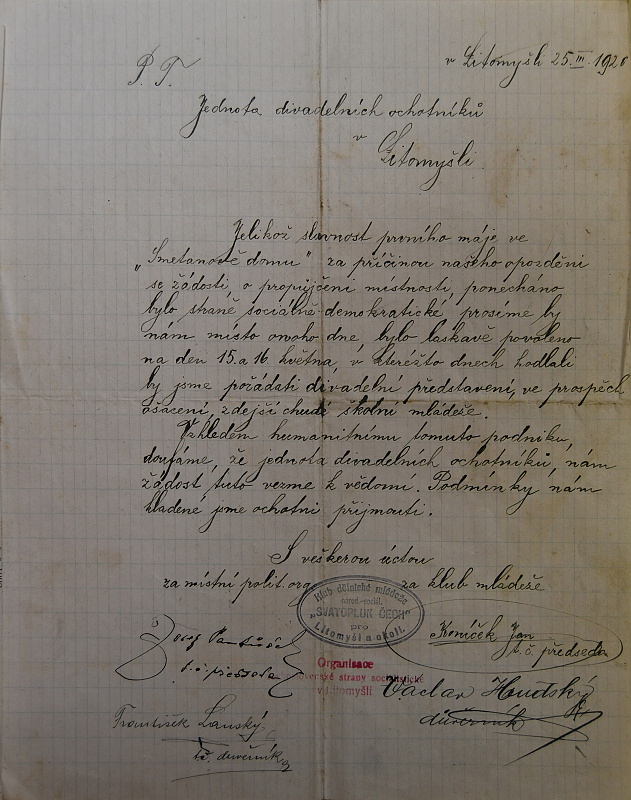 v Litomyšli 25.III.1920
P. T.
Jednota divadelních ochotníků
v
Litomyšli.
Jelikož slavnost prvního máje ve
„Smetanově domu" za příčinou našeho opozdění
se žádostí, o propůjčení místností, ponecháno
bylo straně sociálně-demokratické, prosíme by
nám místo onoho dne, bylo laskavě povoleno
na den 15. a 16. května, v kterýžto dnech hodlali
by jsme pořádati divadelní představení, ve prospěch
ošacení, zdejší chudé školní mládeže.
Vzhledem humanitnímu tomuto podniku,
doufáme, že jednota divadelních ochotníků, nám
žádost tuto vezme k vědomí. Podmínky nám
kladené jsme ochotni přijmouti.
S veškerou úctou
za místní polit. org. za klub mládeže
Klub dělnické mládeže
národ.-sociál.
„SVATOPLUK ČECH"
pro
Litomyšl a okolí.
Josef
Koníček Jan
t. č. předseda
t. č. předseda
Organisace
slovenské strany socialistické
v Litomyšli
Václav
důvěrník
František Lánský
t.č. důvěrník